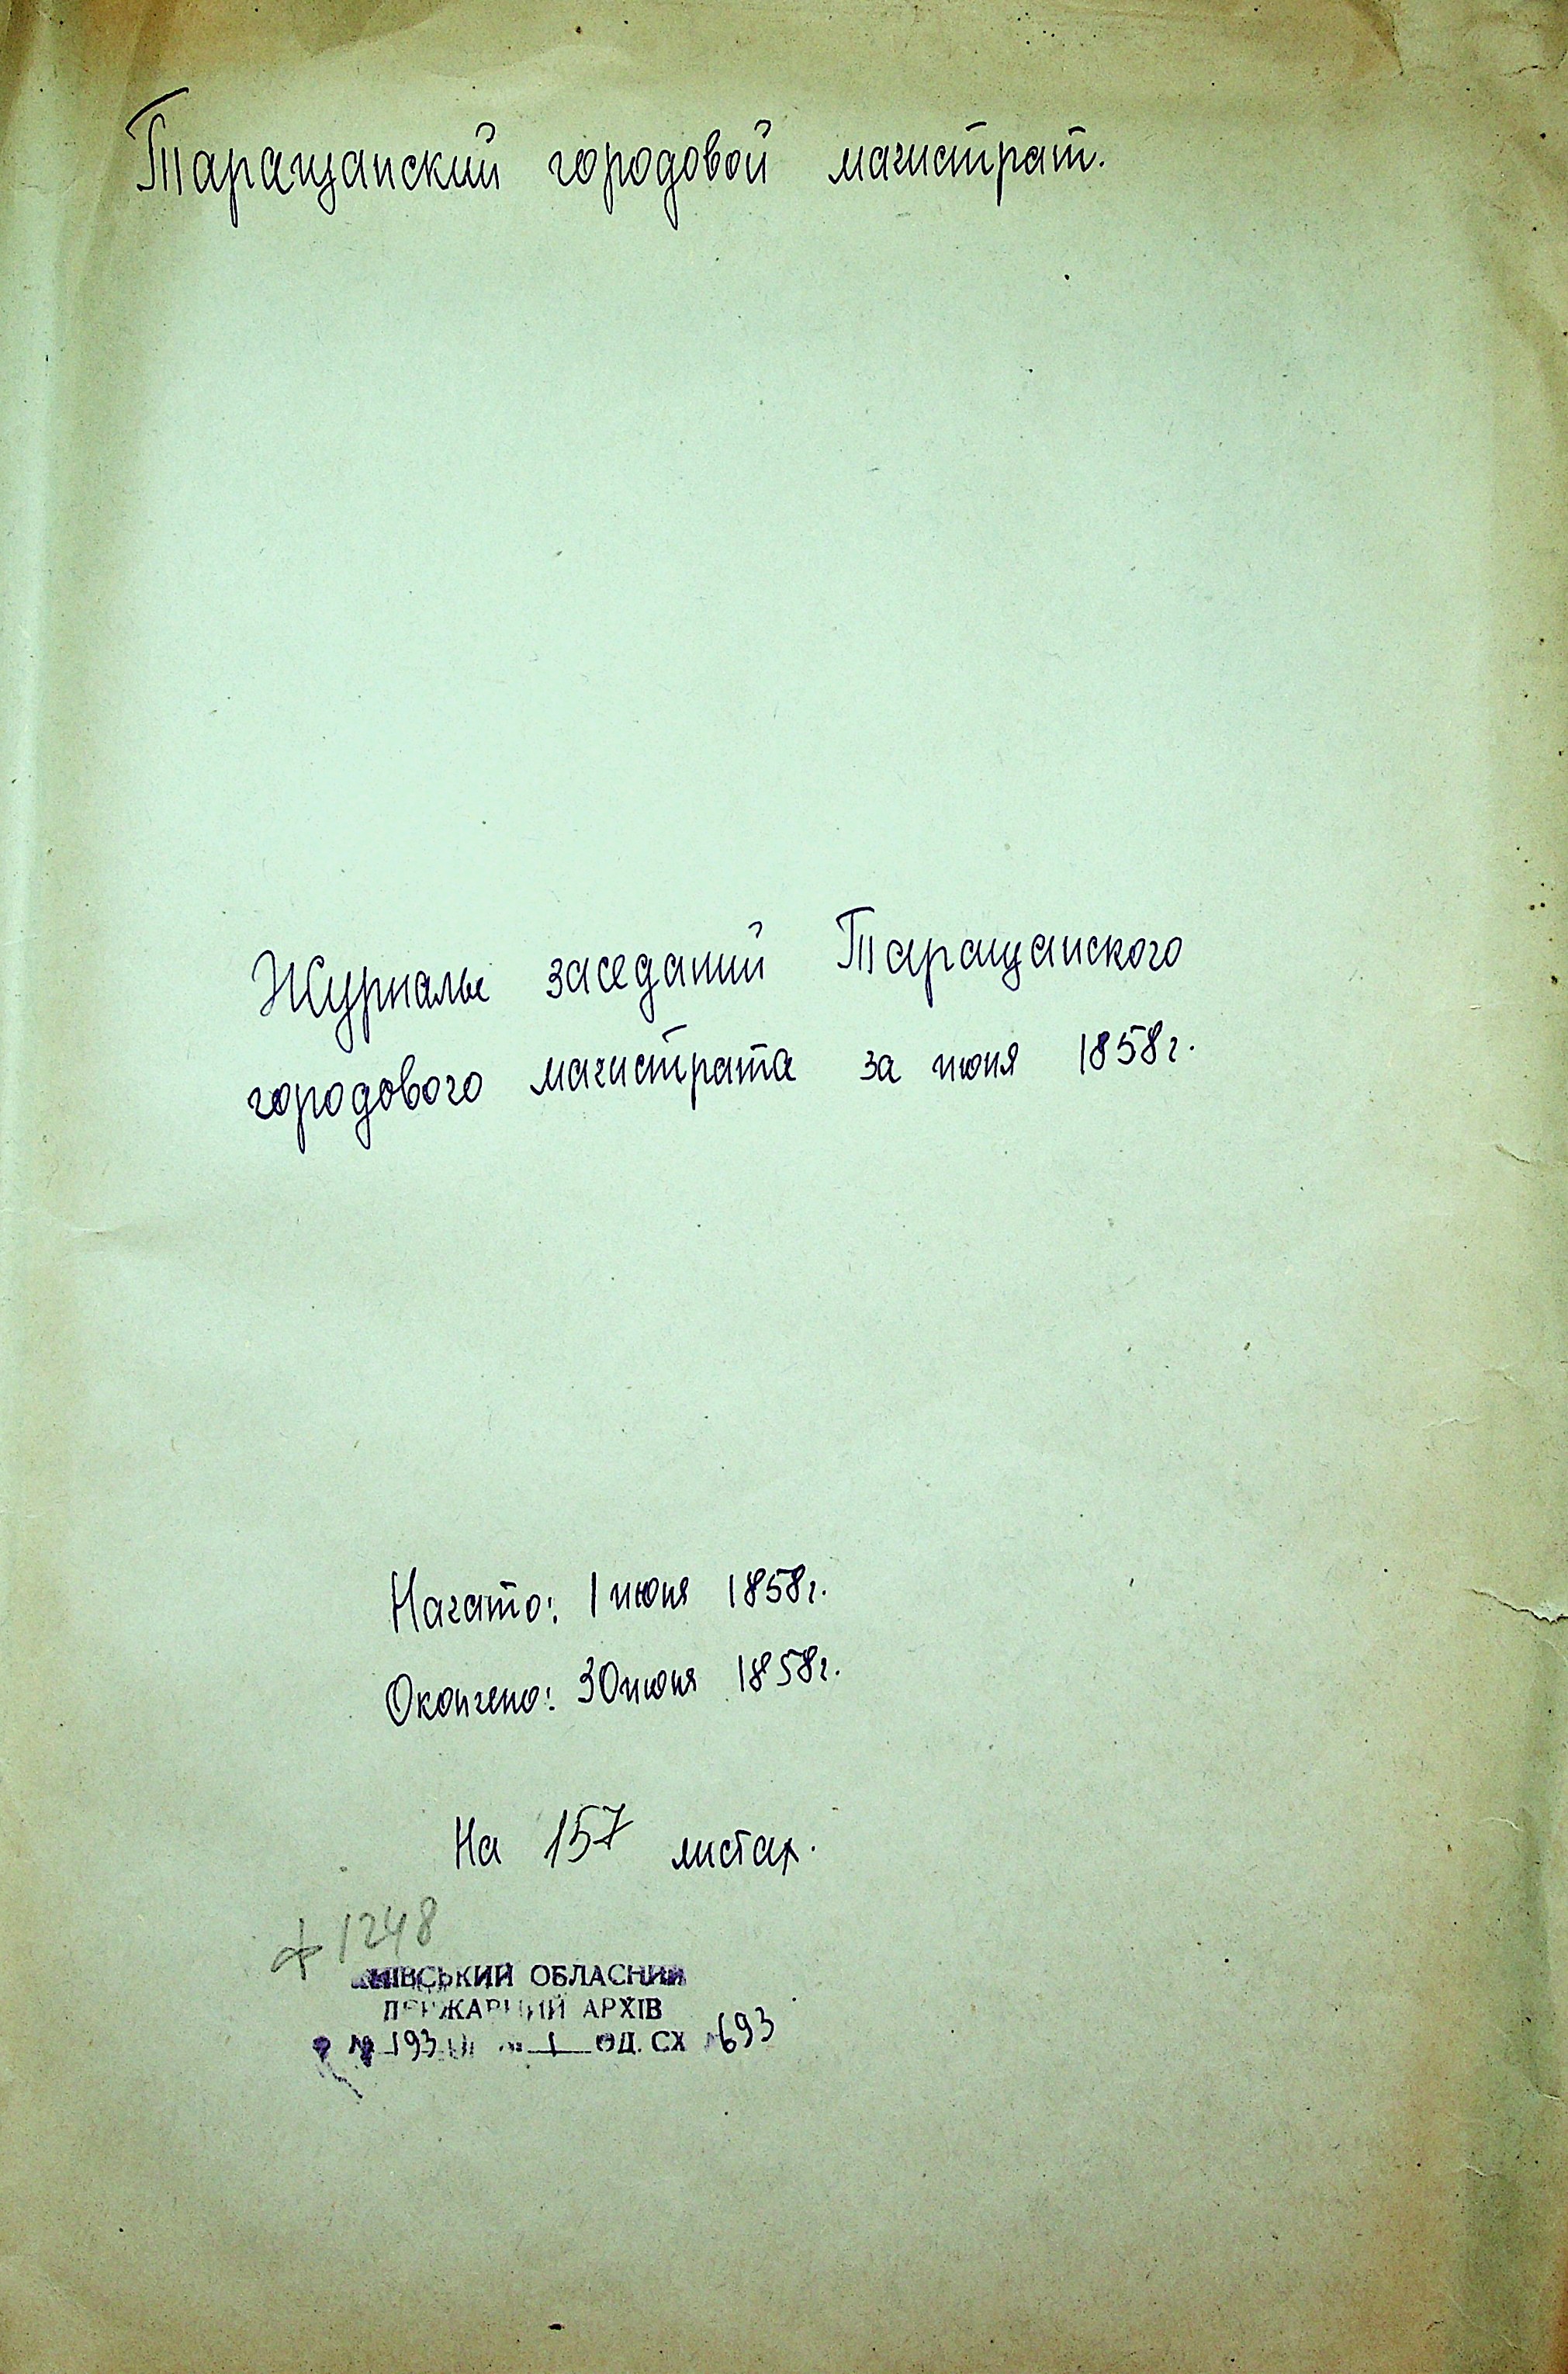 Таращанский городовой магистрат.
Журналы заседаний Таращанского
городового магистрата за июня 1858г.
Начато: 1 июня 1858г.
Окончено: 30 июня 1858г.
На 157 листах.
1248
КИЇВСЬКИЙ ОБЛАСНИЙ
ДЕРЖАВНИЙ АРХІВ
№ 193 1 ОД. СХ 693